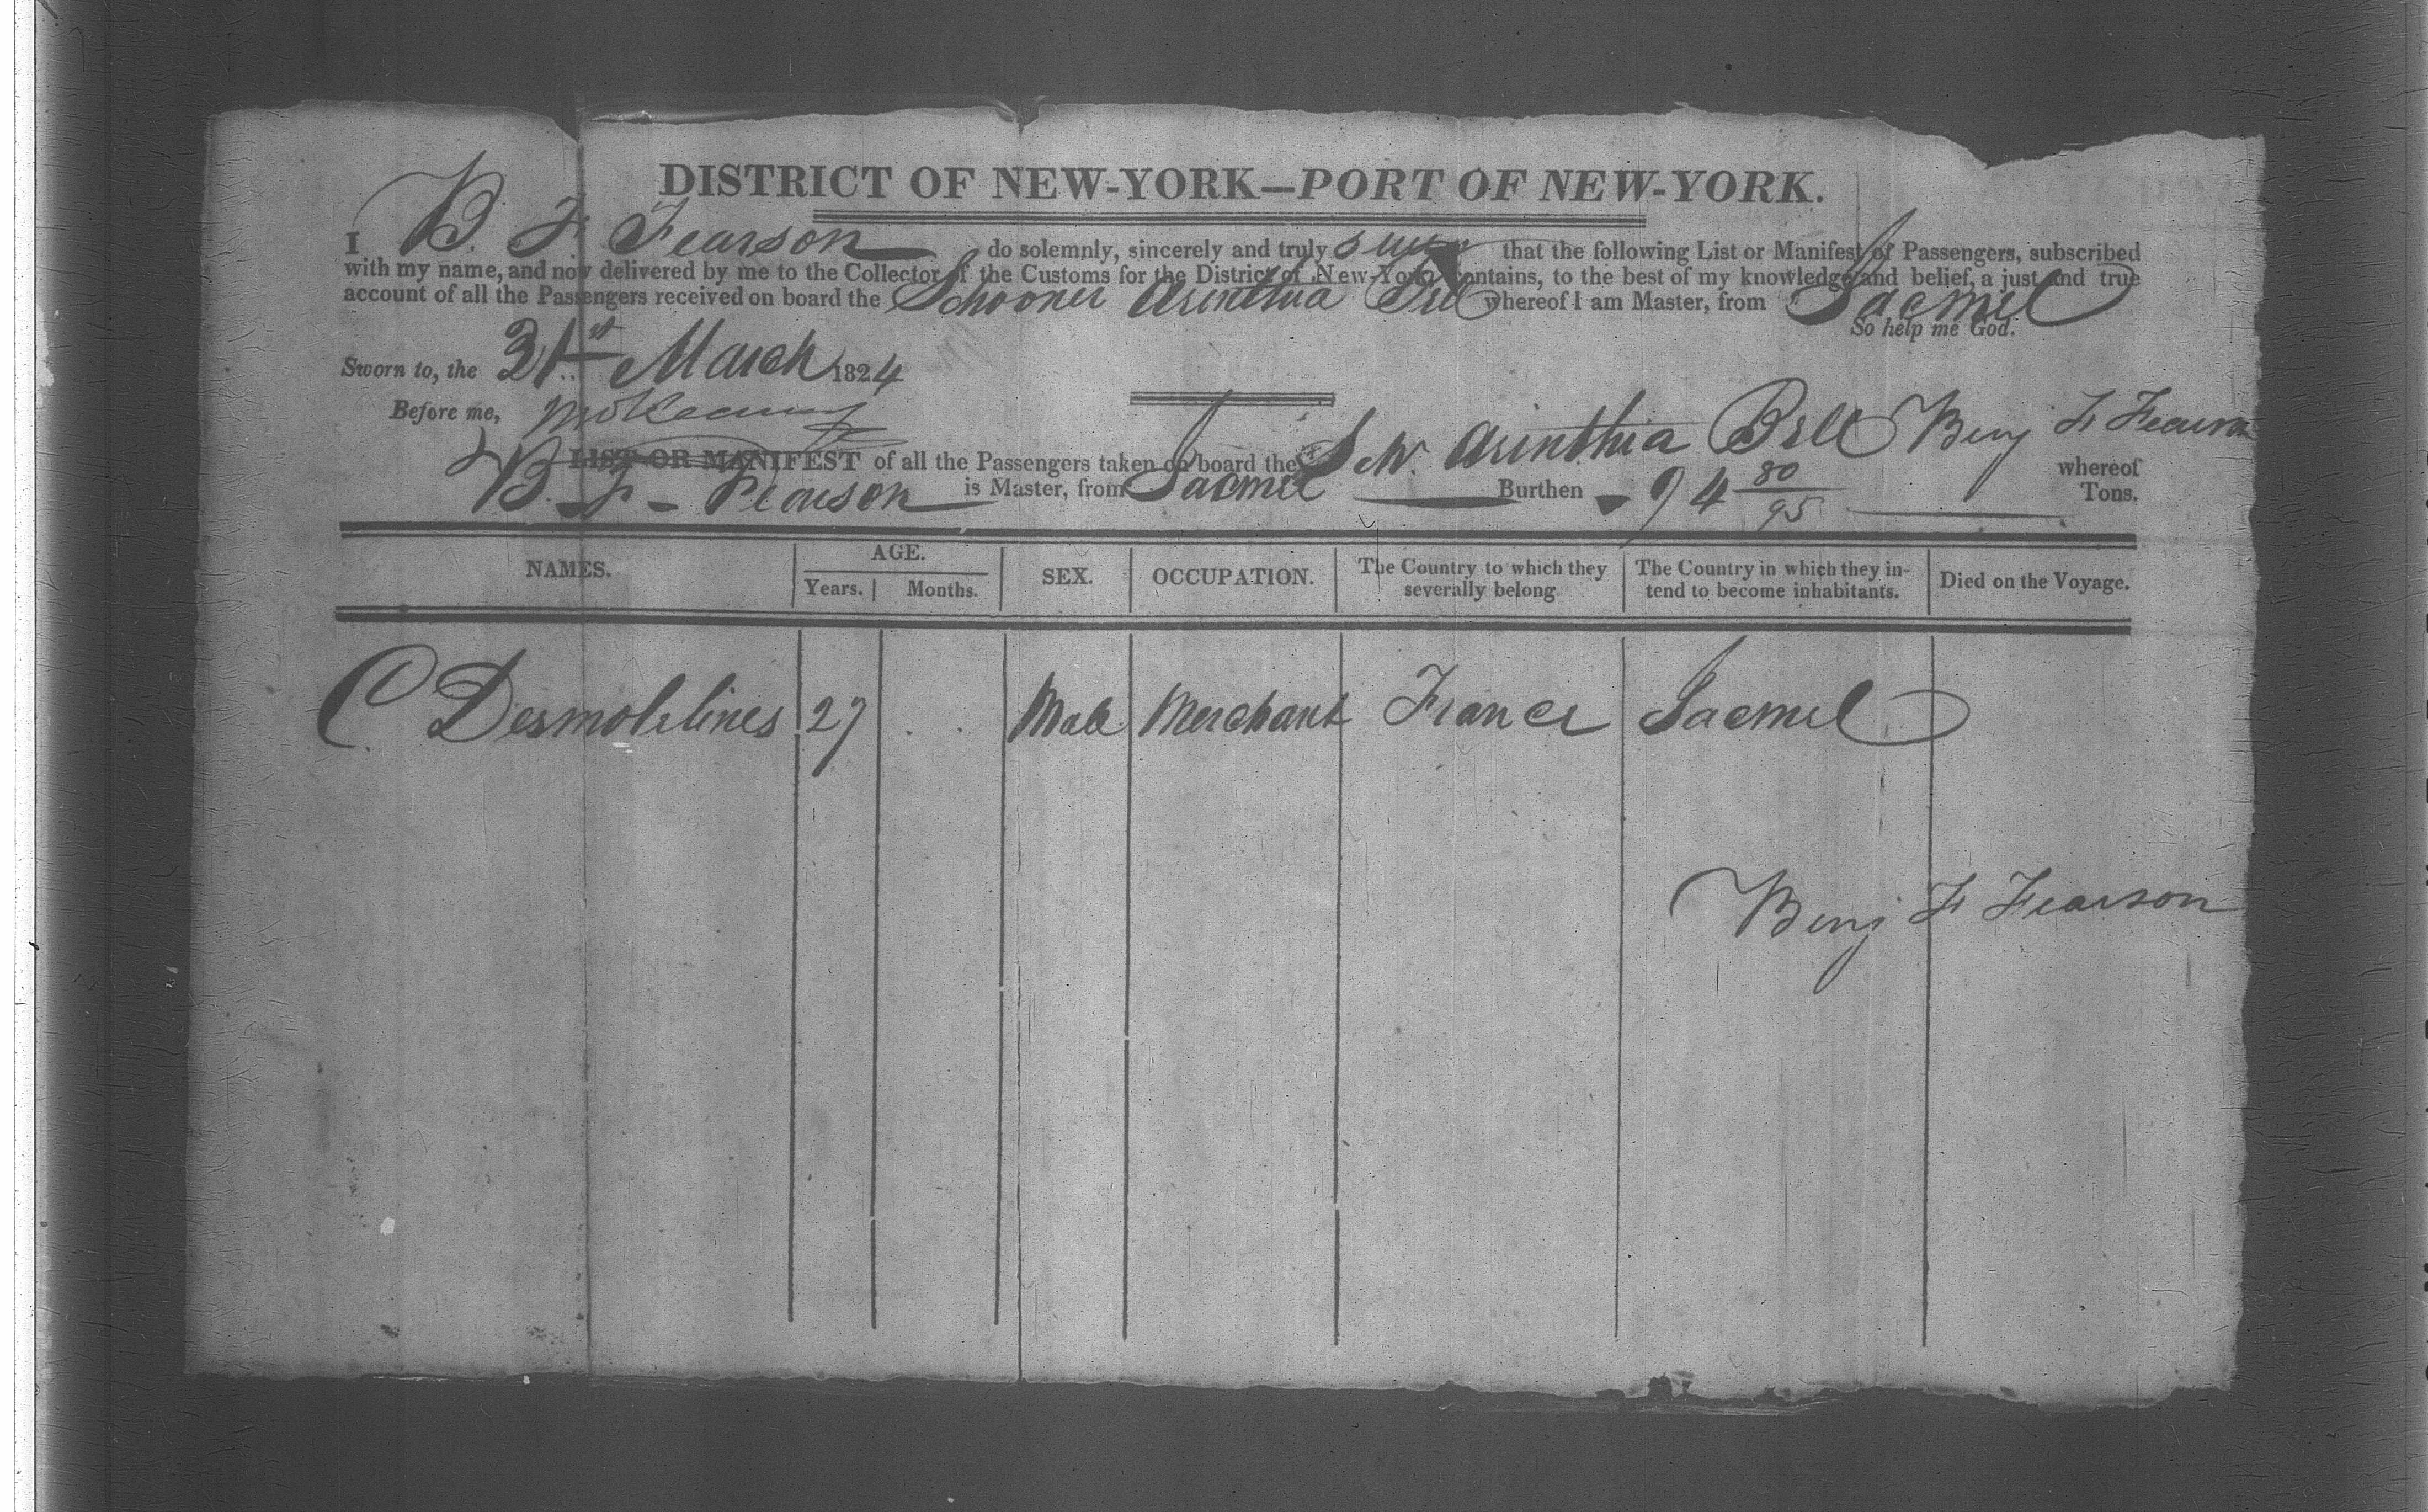 DISTRICT OF NEW-YORK—PORT OF NEW-YORK.
I B. F. Fearson do solemnly, sincerely and truly swear that the following List or Manifest of Passengers, subscribed
with my name, and now delivered by me to the Collector of the Customs for the District of New-York contains, to the best of my knowledge and belief, a just and true
account of all the Passengers received on board the Schooner Arinthia Bell whereof I am Master, from Jacmel
So help me God.
Sworn to, the 31st March 1824
Before me,
LIST OR MANIFEST of all the Passengers taken on board the Schr. Arinthia Bell Benj F Fearson whereof
B. F. Fearson is Master, from Jacmel Burthen 94 80/95 Tons.
NAMES. AGE. SEX. OCCUPATION. The Country to which they severally belong The Country in which they in-tend to become inhabitants. Died on the Voyage.
Years. Months.
C Desmolilines 27 . . Male Merchant France Jacmel
Benj F Fearson